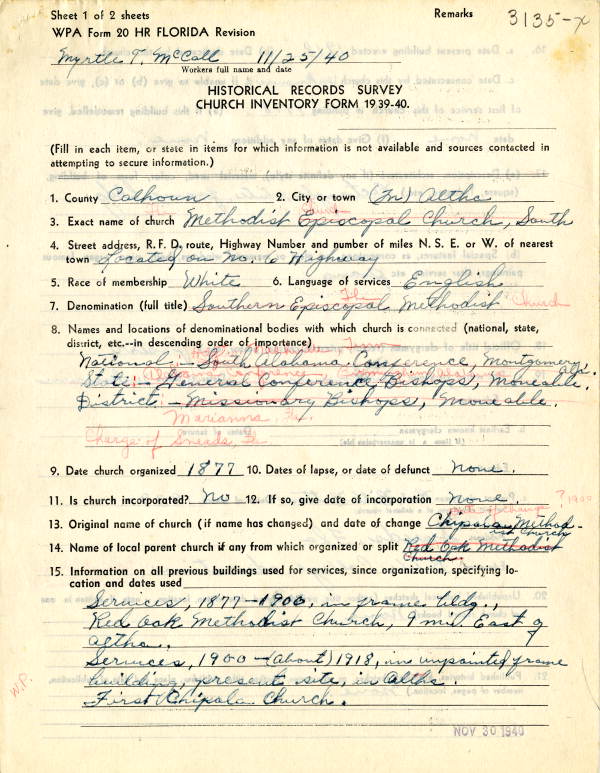 Sheet 1 of 2 sheets
Remarks
3135-x
WPA Form 20 HR FLORIDA Revision
Myrtle T. McCall 11/25/40
Workers full name and date
HISTORICAL RECORDS SURVEY
CHURCH INVENTORY FORM 1939-40.
(Fill in each item, or state in items for which information is not available and sources contacted in
attempting to secure information.)
1. County Calhoun 2. City or town (In) Altha
3. Exact name of church Methodist Episcopal Church, South
4. Street address, R. F. D. route, Highway Number and number of miles N. S. E. or W. of nearest
town Located on No. 6 Highway
5. Race of membership White 6. Language of services English
The
7. Denomination (full title) Southern Episcopal Methodist Church
8. Names and locations of denominational bodies with which church is connected (national, state,
district, etc.--in descending order of importance)
National:- South Alabama Conference, Montgomery Ala.
State:- General Conference, Bishops, Moveable.
District:- Missionary Bishops, Moveable.
Marianna, Fla.
Charge of Sneads, Fla.
9. Date church organized 1877 10. Dates of lapse, or date of defunct None.
11. Is church incorporated? No 12. If so, give date of incorporation None.
? 1900
13. Original name of church (if name has changed) and date of change Chipola Method-
ist Church
14. Name of local parent church if any from which organized or split Red Oak Methodist
Church
15. Information on all previous buildings used for services, since organization, specifying lo-
cation and dates used
Services, 1877-1900, in frame bldg.,
Red Oak Methodist Church, 9 mi. East of
Altha.
Services, 1900-(about) 1918, in unpainted frame
building, present site, in Altha.
First Chipola Church.
W.P.
NOV 30 1940